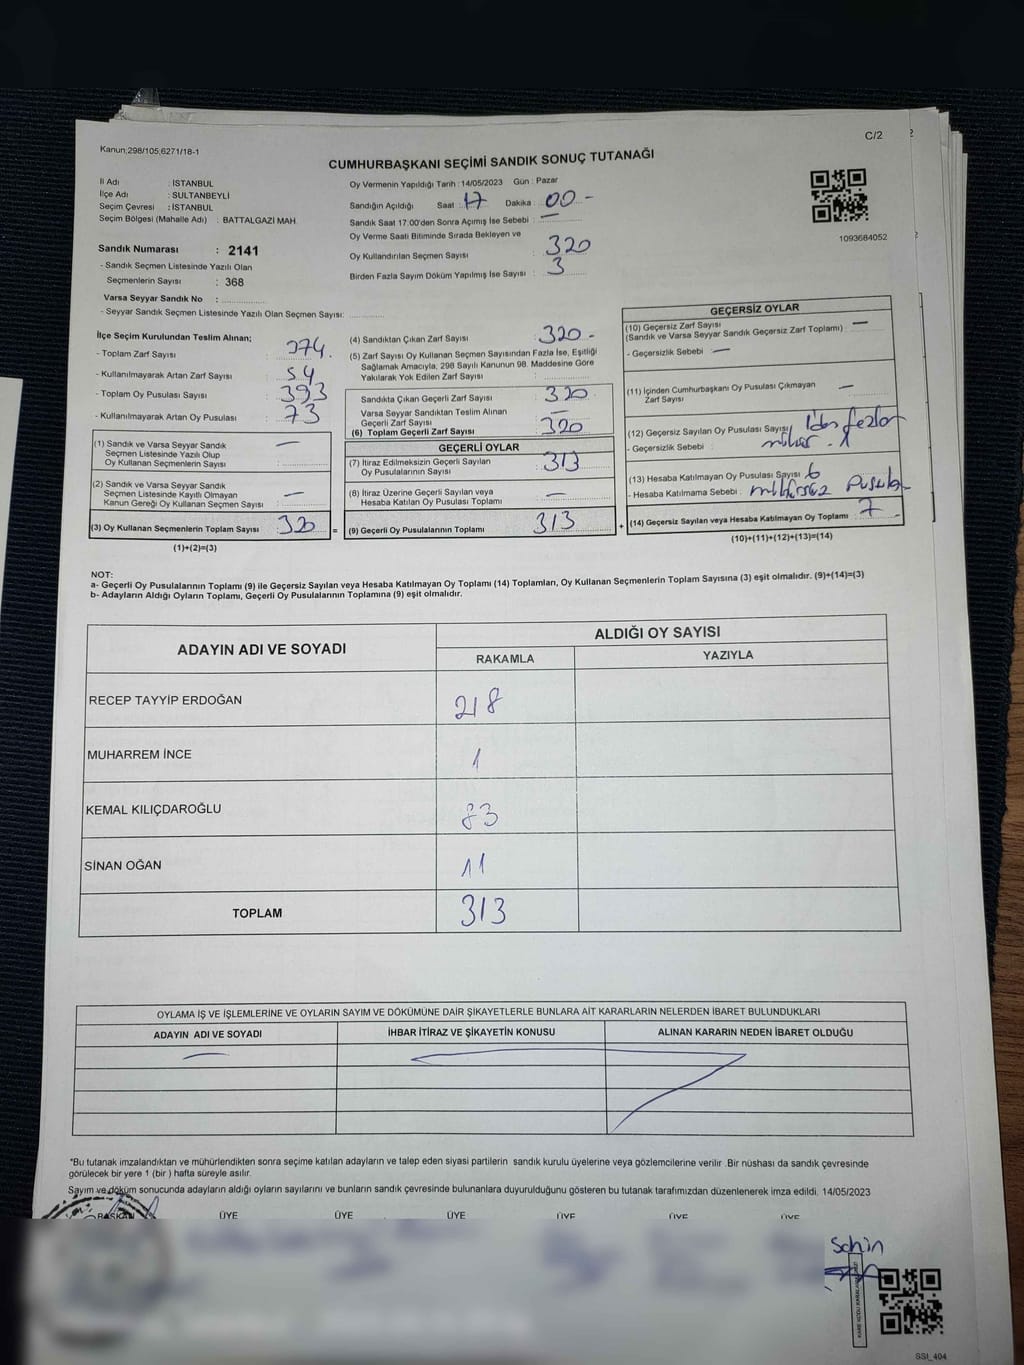 C/2
Kanun;298/105,6271/18-1
CUMHURBAŞKANI SEÇİMİ SANDIK SONUÇ TUTANAĞI
İl Adı : İSTANBUL
İlçe Adı : SULTANBEYLİ
Seçim Çevresi : İSTANBUL
Seçim Bölgesi (Mahalle Adı) : BATTALGAZİ MAH.
Sandık Numarası : 2141
- Sandık Seçmen Listesinde Yazılı Olan
Seçmenlerin Sayısı : 368
Varsa Seyyar Sandık No :
- Seyyar Sandık Seçmen Listesinde Yazılı Olan Seçmen Sayısı:
Oy Vermenin Yapıldığı Tarih :14/05/2023 Gün : Pazar
Sandığın Açıldığı Saat : 17 Dakika : 00 -
Sandık Saat 17.00'den Sonra Açımış İse Sebebi : —
Oy Verme Saati Bitiminde Sırada Bekleyen ve
Oy Kullandırılan Seçmen Sayısı : 320
Birden Fazla Sayım Döküm Yapılmış İse Sayısı : 3
1093684052
İlçe Seçim Kurulundan Teslim Alınan;
- Toplam Zarf Sayısı : 374.
- Kullanılmayarak Artan Zarf Sayısı : 54
- Toplam Oy Pusulası Sayısı : 393
- Kullanılmayarak Artan Oy Pusulası : 73
(1) Sandık ve Varsa Seyyar Sandık —
Seçmen Listesinde Yazılı Olup
Oy Kullanan Seçmenlerin Sayısı :
(2) Sandık ve Varsa Seyyar Sandık
Seçmen Listesinde Kayıtlı Olmayan —
Kanun Gereği Oy Kullanan Seçmen Sayısı :
(3) Oy Kullanan Seçmenlerin Toplam Sayısı : 320 =
(1)+(2)=(3)
(4) Sandıktan Çıkan Zarf Sayısı : 320 -
(5) Zarf Sayısı Oy Kullanan Seçmen Sayısından Fazla İse, Eşitliği
Sağlamak Amacıyla, 298 Sayılı Kanunun 98. Maddesine Göre
Yakılarak Yok Edilen Zarf Sayısı :
Sandıkta Çıkan Geçerli Zarf Sayısı : 320
Varsa Seyyar Sandıktan Teslim Alınan —
Geçerli Zarf Sayısı :
(6) Toplam Geçerli Zarf Sayısı : 320
GEÇERLİ OYLAR
(7) İtiraz Edilmeksizin Geçerli Sayılan
Oy Pusulalarının Sayısı : 313
(8) İtiraz Üzerine Geçerli Sayılan veya —
Hesaba Katılan Oy Pusulası Toplamı :
(9) Geçerli Oy Pusulalarının Toplamı : 313 +
GEÇERSİZ OYLAR
(10) Geçersiz Zarf Sayısı —
(Sandık ve Varsa Seyyar Sandık Geçersiz Zarf Toplamı) :
- Geçersizlik Sebebi : —
(11) İçinden Cumhurbaşkanı Oy Pusulası Çıkmayan —
Zarf Sayısı :
(12) Geçersiz Sayılan Oy Pusulası Sayısı : 1'den fazla
- Geçersizlik Sebebi : mühür . 1
(13) Hesaba Katılmayan Oy Pusulası Sayısı : 6
- Hesaba Katılmama Sebebi : mühürsüz pusula
(14) Geçersiz Sayılan veya Hesaba Katılmayan Oy Toplamı : 7
(10)+(11)+(12)+(13)=(14)
NOT:
a- Geçerli Oy Pusulalarının Toplamı (9) ile Geçersiz Sayılan veya Hesaba Katılmayan Oy Toplamı (14) Toplamları, Oy Kullanan Seçmenlerin Toplam Sayısına (3) eşit olmalıdır. (9)+(14)=(3)
b- Adayların Aldığı Oyların Toplamı, Geçerli Oy Pusulalarının Toplamına (9) eşit olmalıdır.
ADAYIN ADI VE SOYADI
ALDIĞI OY SAYISI
RAKAMLA YAZIYLA
RECEP TAYYİP ERDOĞAN 218
MUHARREM İNCE 1
KEMAL KILIÇDAROĞLU 83
SİNAN OĞAN 11
TOPLAM 313
OYLAMA İŞ VE İŞLEMLERİNE VE OYLARIN SAYIM VE DÖKÜMÜNE DAİR ŞİKAYETLERLE BUNLARA AİT KARARLARIN NELERDEN İBARET BULUNDUKLARI
ADAYIN ADI VE SOYADI İHBAR İTİRAZ VE ŞİKAYETİN KONUSU ALINAN KARARIN NEDEN İBARET OLDUĞU
*Bu tutanak imzalandıktan ve mühürlendikten sonra seçime katılan adayların ve talep eden siyasi partilerin sandık kurulu üyelerine veya gözlemcilerine verilir .Bir nüshası da sandık çevresinde
görülecek bir yere 1 (bir ) hafta süreyle asılır.
Sayım ve döküm sonucunda adayların aldığı oyların sayılarını ve bunların sandık çevresinde bulunanlara duyurulduğunu gösteren bu tutanak tarafımızdan düzenlenerek imza edildi. 14/05/2023
BAŞKAN ÜYE ÜYE ÜYE ÜYE ÜYE ÜYE
SSI_404